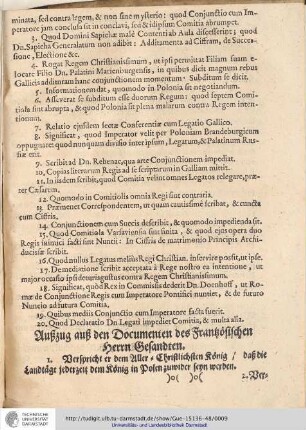 minata, sed contra legem, & non sine mysterio: quod Conjunctio cum Im-
peratore jam conclusa sit in conclavi, sed & id ipsum Comitia abrumpet.
3. Quod Domini Sapieha male Contenti ab Aula discesserint; quod
Dn. Sapieha Generalatum non adibit: Additamenta ad Ciffram, de Successio-
ne, Electione &c.
4. Rogat Regem Christianissimum, ut ipsi permittat Filium suum
locare Filio Dn. Palatini Marienburgensis, in quibus dicit magnum rebus
Gallicis additurum hanc conjunctionem momentum: Subditum se dicit.
5. Informationem dat, quomodo in Polonia sit negotiandum.
6. Asseverat se subditum esse duorum Regum: quod septem Comi-
tiola sint abrupta, & quod in Polonia sit plena multorum contra Regem inten-
tionum.
7. Relatio ejusdem sextæ Conferentiæ cum Legato Gallico.
8. Significat, quod Imperator velit per Poloniam Brandeburgicum
oppugnare: quod nunquam durius inter ipsum, Legatum, & Palatinum Rus-
siæ erit.
9. Scribit ad Dn. Rebenac, qua arte Conjunctionem impediat.
10. Copias literarum Regis ad se scriptarum in Galliam mittit.
11. In iisdem scribit, quod Comitia velint omnes Legatos relegare, præ-
ter Cæsarem.
12. Quomodo in Comitiolis omnia Regi sint contraria.
13. Præmonet Correspondentem, ut quam cautissime scribat, & cuncta
cum Ciffris.
14. Conjunctionem cum Suecis describit, & quomodo impedienda sit.
15. Quod Comitiola Varsaviensia sint finita, & quod ejus opera duo
Regis inimici facti sint Nuncii: In Ciffris de matrimonio Principis Archi-
ducissæ scribit.
16. Quod nullus Legatus melius Regi Christian. inservire possit, ut ipse.
17. Demonitione scribit acceptata à Rege nostro ea intentione, ut
major occasio sit deinceps justè contra Regem Christianissimum.
18. Significat, quod Rex in Commissis dederit Dn. Doenhoff, ut Ro-
mæ de Conjunctione Regis cum Imperatore Pontifici nunciet, & de futuro
Nuncio ad futura Comitia.
19. Quibus mediis Conjunctio cum Imperatore facta fuerit.
20. Quod Declaratio Dn. Legati impediet Comitia, & multa alia.
Außzug auß den Documenten des Frantzösischen
Herrn Gesandten.
1. Verspricht er dem Aller-Christlichsten König / daß die
Landtäge jederzeit dem König in Polen zuwider seyn werden.
)( )(
2. Ver-
TECHNISCHE UNIVERSITÄT DARMSTADT
http://tudigit.ulb.tu-darmstadt.de/show/Gue-15136-48/0009
Universitäts- und Landesbibliothek Darmstadt